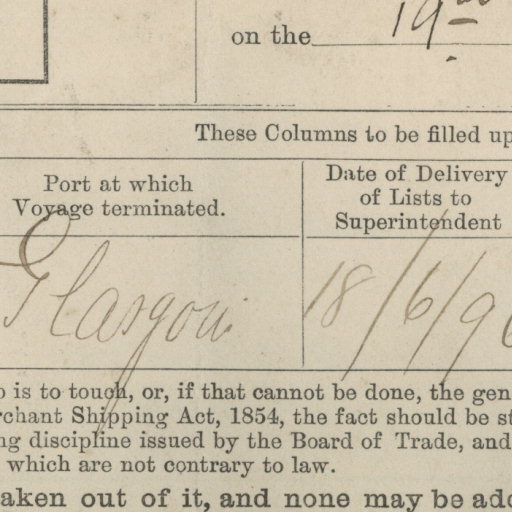 on the 19
These Columns to be filled up
Port at which
Voyage terminated.
Date of Delivery
of Lists to
Superintendent
Glasgow
18/6/96
o is to touch, or, if that cannot be done, the gen
rchant Shipping Act, 1854, the fact should be st
ng discipline issued by the Board of Trade, and
which are not contrary to law.
aken out of it, and none may be add